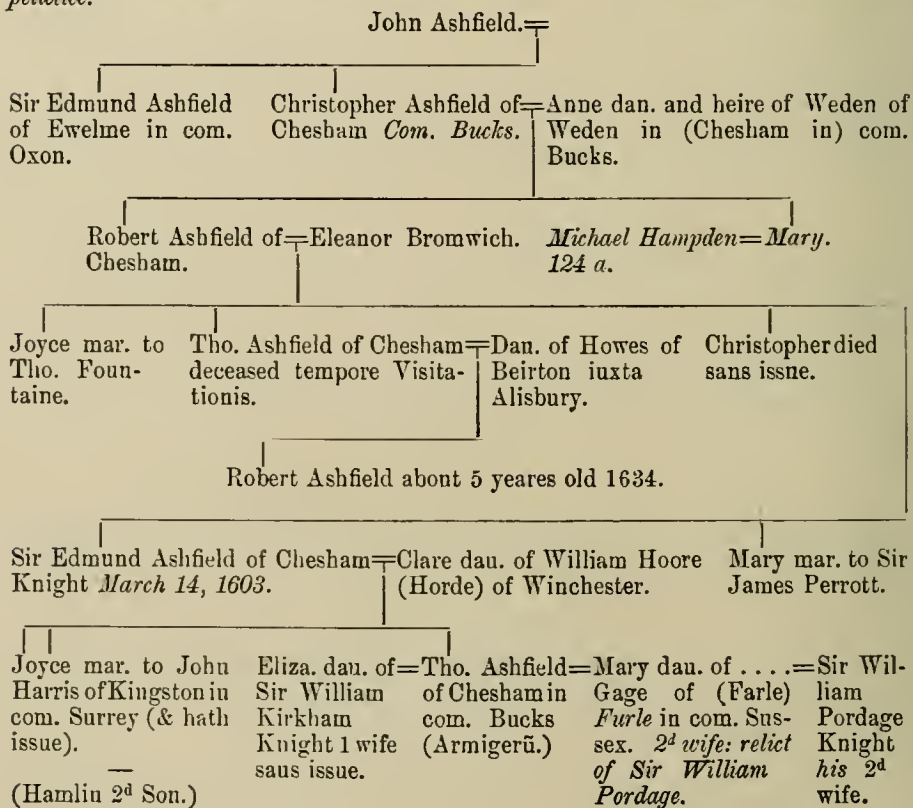 John Ashfield.
Sir Edmund Ashfield
of Ewelme in com.
Oxon.
Christopher Ashfield of
Chesham Com. Bucks.
Anne dan. and heire of Weden of
Weden in (Chesham in) com.
Bucks.
Robert Ashfield of
Chesham.
Eleanor Bromwich.
Michael Hampden=Mary.
124 a.
Joyce mar. to
Tho. Foun-
taine.
Tho. Ashfield of Chesham
deceased tempore Visita-
tionis.
Dan. of Howes of
Beirton iuxta
Alisbury.
Christopher died
sans issue.
Robert Ashfield about 5 yeares old 1634.
Sir Edmund Ashfield of Chesham
Knight March 14, 1603.
Clare dau. of William Hoore
(Horde) of Winchester.
Mary mar. to Sir
James Perrott.
Joyce mar. to John
Harris of Kingston in
com. Surrey (& hath
issue).
(Hamlin 2d Son.)
Eliza. dau. of=
Sir William
Kirkham
Knight 1 wife
sans issue.
Tho. Ashfield=
of Chesham in
com. Bucks
(Armigerũ.)
Mary dau. of . . . .=
Gage of (Farle)
Furle in com. Sus-
sex. 2d wife: relict
of Sir William
Pordage.
Sir Wil-
liam
Pordage
Knight
his 2d
wife.